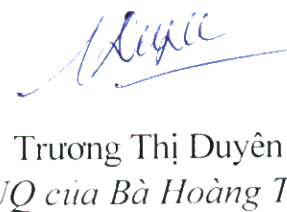 Trương Thị Duyên
UQ của Bà Hoàng T